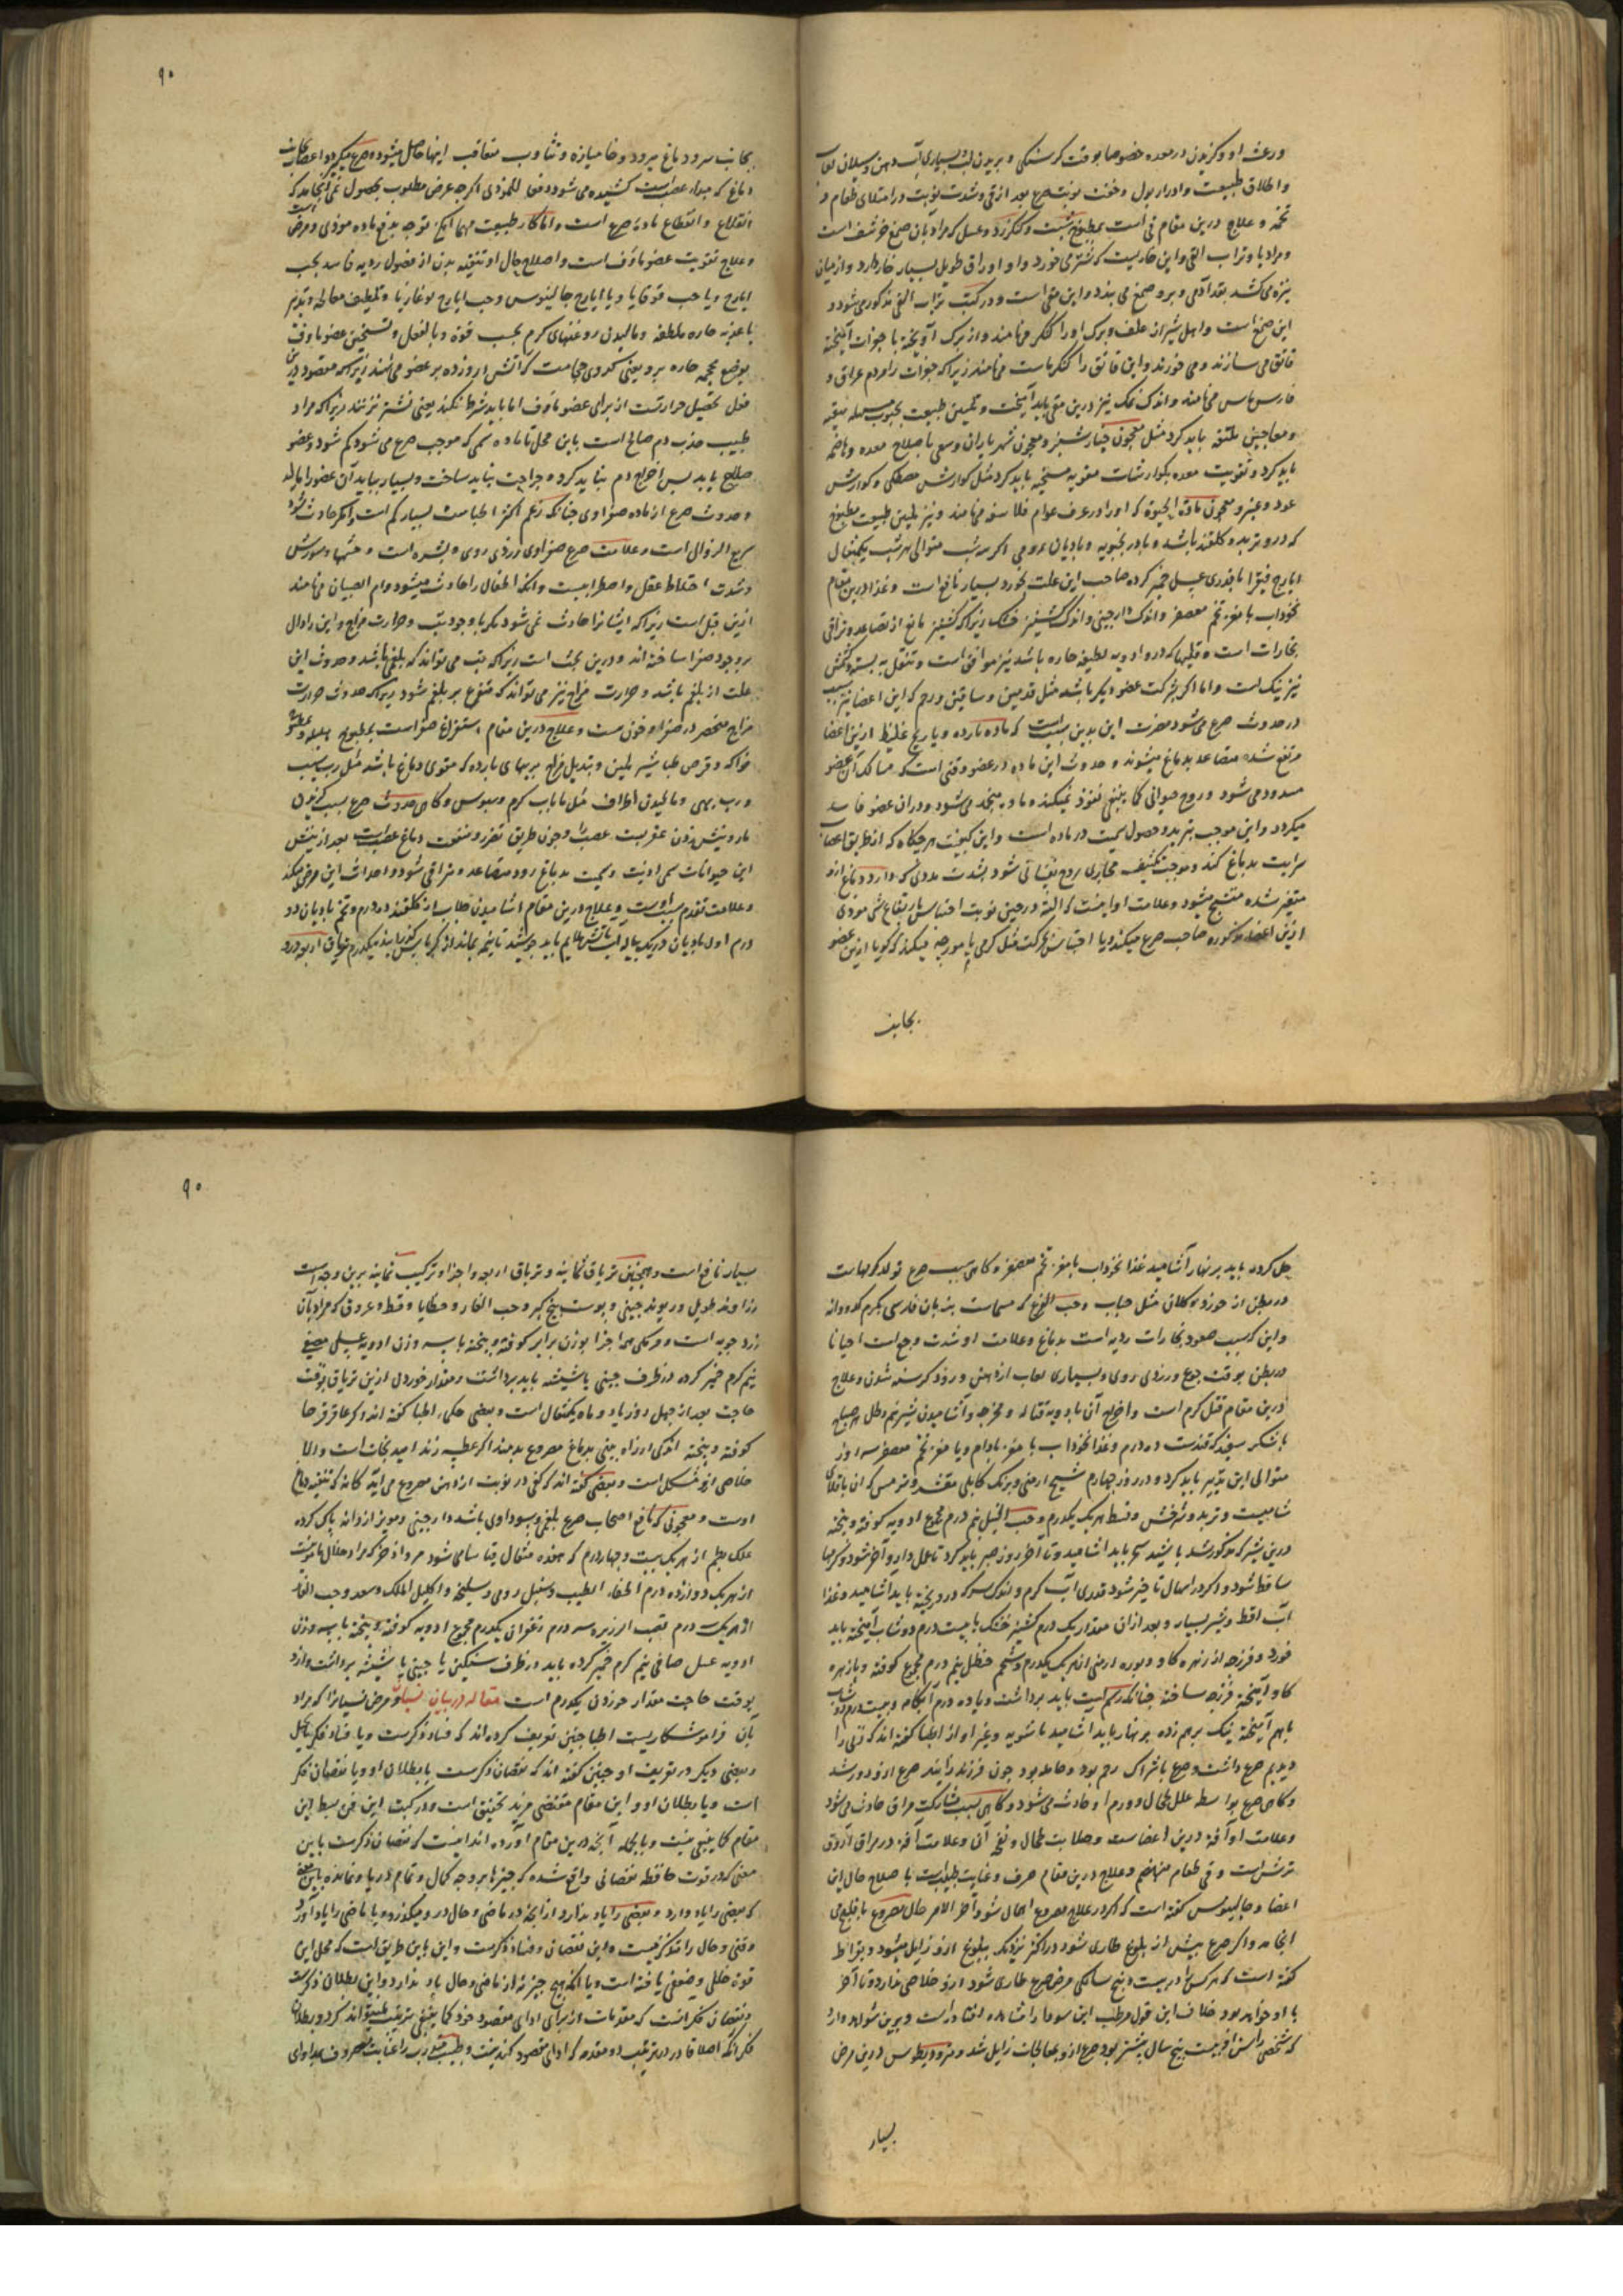 ورعشه او و کزیدن در معده خصوصا بوقت کرسنکی و پریدن لب و بسیاری آب دهن و سیلان لعاب
و اطلاق طبیعت و ادرار بول و خفت نوبت صرع بعد از قی و شدت نوبت در امتلای طعام و
تخمه و علاج درین مقام قی است بمطبوخ شبت و کنکرزد و عسل که مراد بان صمغ خرشف است
و مراد با و تراب القی و این خاریست که شتر می خورد و او اوراق طویل بسیار خار دارد و از میان
نیزه می کشد بقد آدمی و برو صمغ می بندد و این مقی است و در کتب تراب القی مذکور می شود و
این صمغ است و اهل شیراز علف و برک او را کنکر می نامند و از برک او پخته با جوات آمیخته
قاتق می سازند و می خورند و این قاتق را کنکر ماست می نامند زیرا که جوات را مردم عراق و
فارس ماس می نامند و اندک نمک نیز درین مقی باید آمیخت و تلیین طبیعت بحبوب مسهله منقیه
و معاجین ملینه باید کرد مثل معجون خیار شنبر و معجون شهریاران و سعی باصلاح معده و هاضمه
باید کرد و تقویت معده بکوارشات مقویه مسخنه باید کرد مثل کوارش مصطکی و کوارش
عود و عنبر و معجون مادة الحیوة که او را در عرف عوام فلاسفه می نامند و نیز تلیین طبیعت بمطبوخ
که درو تربد و کلقند باشد و بادرنجبویه و بادیان رومی اکر سه شب متوالی هر شب یکمثقال
ایارج فیقرا با بقدری عسل خمیر کرده صاحب این علت بخورد بسیار نافع است و غذا درین مقام
نخوداب با مغز تخم معصفر و اندک دارچینی و اندک کشنیز خشک زیرا که کشنیز مانع از تصاعد و تراقی
بخارات است و قلیها که درو ادویه لطیفه حاره باشد نیز موافق است و تنقل به پسته و کشمش
نیز نیک است و اما اکر بشرکت عضو دیکر باشد مثل قدمین و ساقین و رحم که این اعضا نیز سبب
در حدوث صرع می شود مضرت این بدین سبب است که ماده بارده و یا ریح غلیظ ازین اعضا
مرتفع شده متصاعد بدماغ میشوند و حدوث این ماده در عضو وقتی است که مسالک آن عضو
مسدود می شود و روح حیوانی کما ینبغی نفوذ نمیکند و ماده منجمد می شود و دران عضو فاسد
میکردد و این موجب تبرید و حصول سمیت در ماده است و این کیفیت هرچکاه که از طریق اعصاب
سرایت بدماغ کند و موجب تکثیف مجاری روح نفسانی شود بشدت بردی که دارد دماغ ازو
متغیر شده متشنج میشود و علامت او اینست که البته در حین نوبت احساس بارتفاع شی موذی
ازین اعضاء مذکوره صاحب صرع میکند و یا احساس بحرکت مثل کرمی یا مورچه میکند که کویا ازین عضو
بجانب
۹۰
بجانب سر و دماغ میرود و خامیازه و تثاوب متعاقب اینها حاصل میشود و صرع میکیرد و اعصاب بجانب
دماغ که مبداء عصب است کشیده می شود دفعا للموذی اکرچه غرض مطلوب بحصول نمی انجامد که
انقلاع و انقطاع ماده صرع است و اما کار طبیعت مهما امکن توجه بدفع ماده موذی و مرض است
و علاج تقویت عضو ماؤف است و اصلاح حال او و تنقیه بدن از فضول ردیه فاسد بحب
ایارج و یا حب قوقایا و یا ایارج جالینوس و حب ایارج لوغاذیا و تلطیف معالجه و تدبیر
باغذیه حاره ملطفه و مالیدن روغنهای کرم بحسب قوه و بالفعل و تسخین عضو ماوف
بوضع محجمه حاره برو یعنی کدوی حجامت که آتش افروزده بر عضو می نهند زیرا که مقصود درین
فعل تحصیل حرارتست از برای عضو ماؤف اما باید شرط نکنند یعنی نشتر نزنند زیرا که مراد
طبیب جذب دم صالح است باین محل تا ماده سمی که موجب صرع می شود کم شود و عضو
صلاح یابد پس اخراج دم نباید کرد و جراحت نباید ساخت و بسیار بباید آن عضو را مالید
و حدوث صرع از ماده صفراوی چنانکه زعم اکثر اطباست بسیار کم است و اکر حادث شود
سریع الزوالی است و علامت صرع صفراوی زردی روی و بشره است و چشمها و سوزش
و شدت اختلاط عقل و اضطرابیست و آنکه اطفال را حادث میشود و ام الصبیان می نامند
ازین قبل است زیرا که ایشانرا حادث نمی شود مکر با وجود تب و حرارت مزاج و این را دال
بر وجود صفرا ساخته اند و درین بحث است زیرا که تب می تواند که بلغمی باشد و حدوث این
علت از بلغم باشد و حرارت مزاج نیز می تواند که متفرع بر بلغم شود زیرا که حدوث حرارت
مزاج منحصر در صفرا و خون نیست و علاج درین مقام استفراغ صفراست بمطبوخ هلیله و مطبوخ
فواکه و قرص طباشیر ملین و تبدیل مزاج بربهای بارده که مقوی دماغ باشد مثل رب سیب
و رب بهی و مالیدن اطراف مثل ما باب کرم و سبوس و کاهی حدوث صرع بسبب کزیدن
مار و نیش زدن عقربست عصب را و چون طریق تضرر و منفعت دماغ عصب است بعد از نیش
این حیوانات سمی اذیت و سمیت بدماغ رود متصاعد و متراقی شود و احداث این مرض میکند
و علامت تقدم سبب اوست و علاج درین مقام اشامیدن جلاب از کلقند ده درم و تخم بادیان دو
درم اول بادیان در یک پیاله آب باتش ملایم باید جوشید تا نیم بماند از کرباس کذرانیده یکدرم تریاق اربعه درو
حل کرده باید بر نهار آشامید غذا نخوداب با مغز تخم معصفر و کاهی سبب صرع تولد کرمهاست
در بطن از خورد و کلان مثل حیات و حب القرع که مسماست بزبان فارسی بکرم کدودانه
و این که سبب صعود بخارات ردیه است بدماغ و علامت او شدت وجع است احیانا
در بطن بوقت جوع و زردی روی و بسیاری لعاب از دهن و زود کرسنه شدن و علاج
درین مقام قتل کرم است و اخراج آن بادویه قتاله و مخرجه و آشامیدن شیر نیم رطل هر صباح
با شکر سفید که قندست ده درم و غذا نخوداب با مغز بادام و یا مغز تخم معصفر سه روز
متوالی این تدبیر باید کرد و در روز چهارم شیح ارمنی و برنک کابلی مقشر و ترمس که ان باقلای
شامیست و تربد و سرخس و قسط هر یک یکدرم و حب النیل نیم درم مجموع ادویه کوفته و بیخته
درین شیر که مذکور شد با شیر سحر باید اشامید و تا آخر روز صبر باید کرد تا عمل دارو آخر شود و کرمها
ساقط شود و اکر در اسهال تاخیر شود قدری آب کرم و اندک سرکه درو ریخته باید اشامید و غذا
آب اقط و شیر بسیار و بعد ازان مقدار یک درم کشنیز خشک با بیست درم دوشاب آمیخته باید
خورد و فرزجه از زهره کاو و بوره ارمنی از هر یک یکدرم و شحم حنظل نیم درم مجموع کوفته و با زهره
کاو آمیخته فرزجه ساخته چنانکه رسم است باید برداشت و یا ده درم آبکامه و بیست درم دوشاب
باهم آمیخته نیک برهم زده بر نهار باید اشامید تا شویه و غیر او از اطبا کفته اند که زنی را
دیدیم صرع داشت و صرع باشراک رحم بود و حامله بود چون فرزند زایند صرع ازو دور شد
و کاهی صرع بواسطه علل طحال و ورم او حادث می شود و کاهی بسبب مشارکت مراق حادث می شود
و علامت او آفه درین اعضاست و صلابت طحال و نفخ آن و علامت آفه در مراق آروق
ترش است و قی طعام منهضم و علاج درین مقام صرف و غایت طبیب است باصلاح حال این
اعضا و جالینوس کفته است که اکر در علاج مصروع اهمال شود آخر الامر حال مصروع بافلیج می
انجامد و اکر صرع پیش از بلوغ طاری شود در اکثر نزدیک ببلوغ ازو زایل میشود و بقراط
کفته است که هر کس را در بیست و پنج سالکی مرض صرع طاری شود ازو خلاصی ندارد و تا آخر
با او خواهد بود خلاف این قول مرطب ابن سوما را مشاهده افتاده است و برین شواهد دارد
که شخصی را سن او بیست پنج سال بیشتر بود صرع ازو بمعالجات زایل شد و مترودیطوس درین مرض
بسیار
۹۰
بسیار نافع است و همچنین تریاق ثمانیه و تریاق اربعه و اجزا و ترکیب ثمانیه برین وجه است
زراوند طویل و ریوند چینی و پوست بیخ کبر و حب الغار و جنطیانا و قسط و عروق که مراد بآن
زرد چوبه است و مرمکی همه اجزا بوزن برابر کوفته و بیخته با سه وزن ادویه عسلی مصفی
نیم کرم خمیر کرده در ظرف چینی یا شیشه باید برداشت و مقدار خوردن ازین تریاق بوقت
حاجت بعد از چهل روز یا دو ماه یکمثقال است و بعضی حکماء اطبا کفته اند اکر عاقرقرحا
کوفته و بیخته اندکی از راه بینی بدماغ مصروع بدمند اکر عطسه زند امید نجات است و الا
خلاصی ازو مشکل است و بعضی کفته اند که کفی در نوبت از دهن مصروع می آید کانه که تنقیه دماغ
اوست و معجونی که نافع اصحاب صرع بلغمی و سوداوی باشد دارچینی و مویز از دانه پاک کرده
علک بطم از هر یک بیست و چهار درم که هفده مثقال رقتا سامی شود مر و اذخر که مراد خلال مامونست
از هر یک دوازده درم اظفار الطیب و سنبل رومی و سلیخه و اکلیل الملک و سعد و حب الغار
از هر یک سه درم قصب الزریره سه درم زعفران یکدرم مجموع ادویه کوفته و بیخته با سه وزن
ادویه عسل صافی نیم کرم خمیر کرده باید در ظرف سنکین یا چینی یا شیشه برداشت و ازو
بوقت حاجت مقدار خوردن یکدرم است مقاله در بیان نسیان و مرض نسیانرا که مراد
بآن فراموشکاریست اطبا چنین تعریف کرده اند که فساد ذکرست و یا فساد فکر یا تخیل
و بعضی دیکر در تعریف او چنین کفته اند که نقصان ذکرست یا بطلان او و یا نقصان فکر
است و یا بطلان او و این مقام مقتضی مزید تحقیق است و در کتب این فن بسط این
مقام کما ینبغی نیست و بالجمله آنچه درین مقام آورده اند اینست که نقصان ذکرست باین
معنی که در قوت حافظه نقصانی واقع شده که چیزها بر وجه کمال و تمام در یاد نمانده باین معنی
که بعضی را یاد دارد و بعضی را یاد ندارد از آنچه در ماضی و حال در و میکذرد و یا ماضی را یاد آورد
وقتی و حال را متذکر نیست و این نقصان و فساد ذکرست و این باین طریق است که محل این
قوة خللی و ضعفی یافته است و یا آنکه هیچ چیز نه از ماضی و حال یاد ندارد و این بطلان ذکرست
و نقصان فکر انست که مقدمات از برای ادای مقصود خود کما ینبغی ترتیب نمیتواند کرد و بطلان
فکر انکه اصلا قادر در ترتیب دو مقدمه که ادای مقصود کند نیست و طبیب مدرب را غایت معروف باید ادای